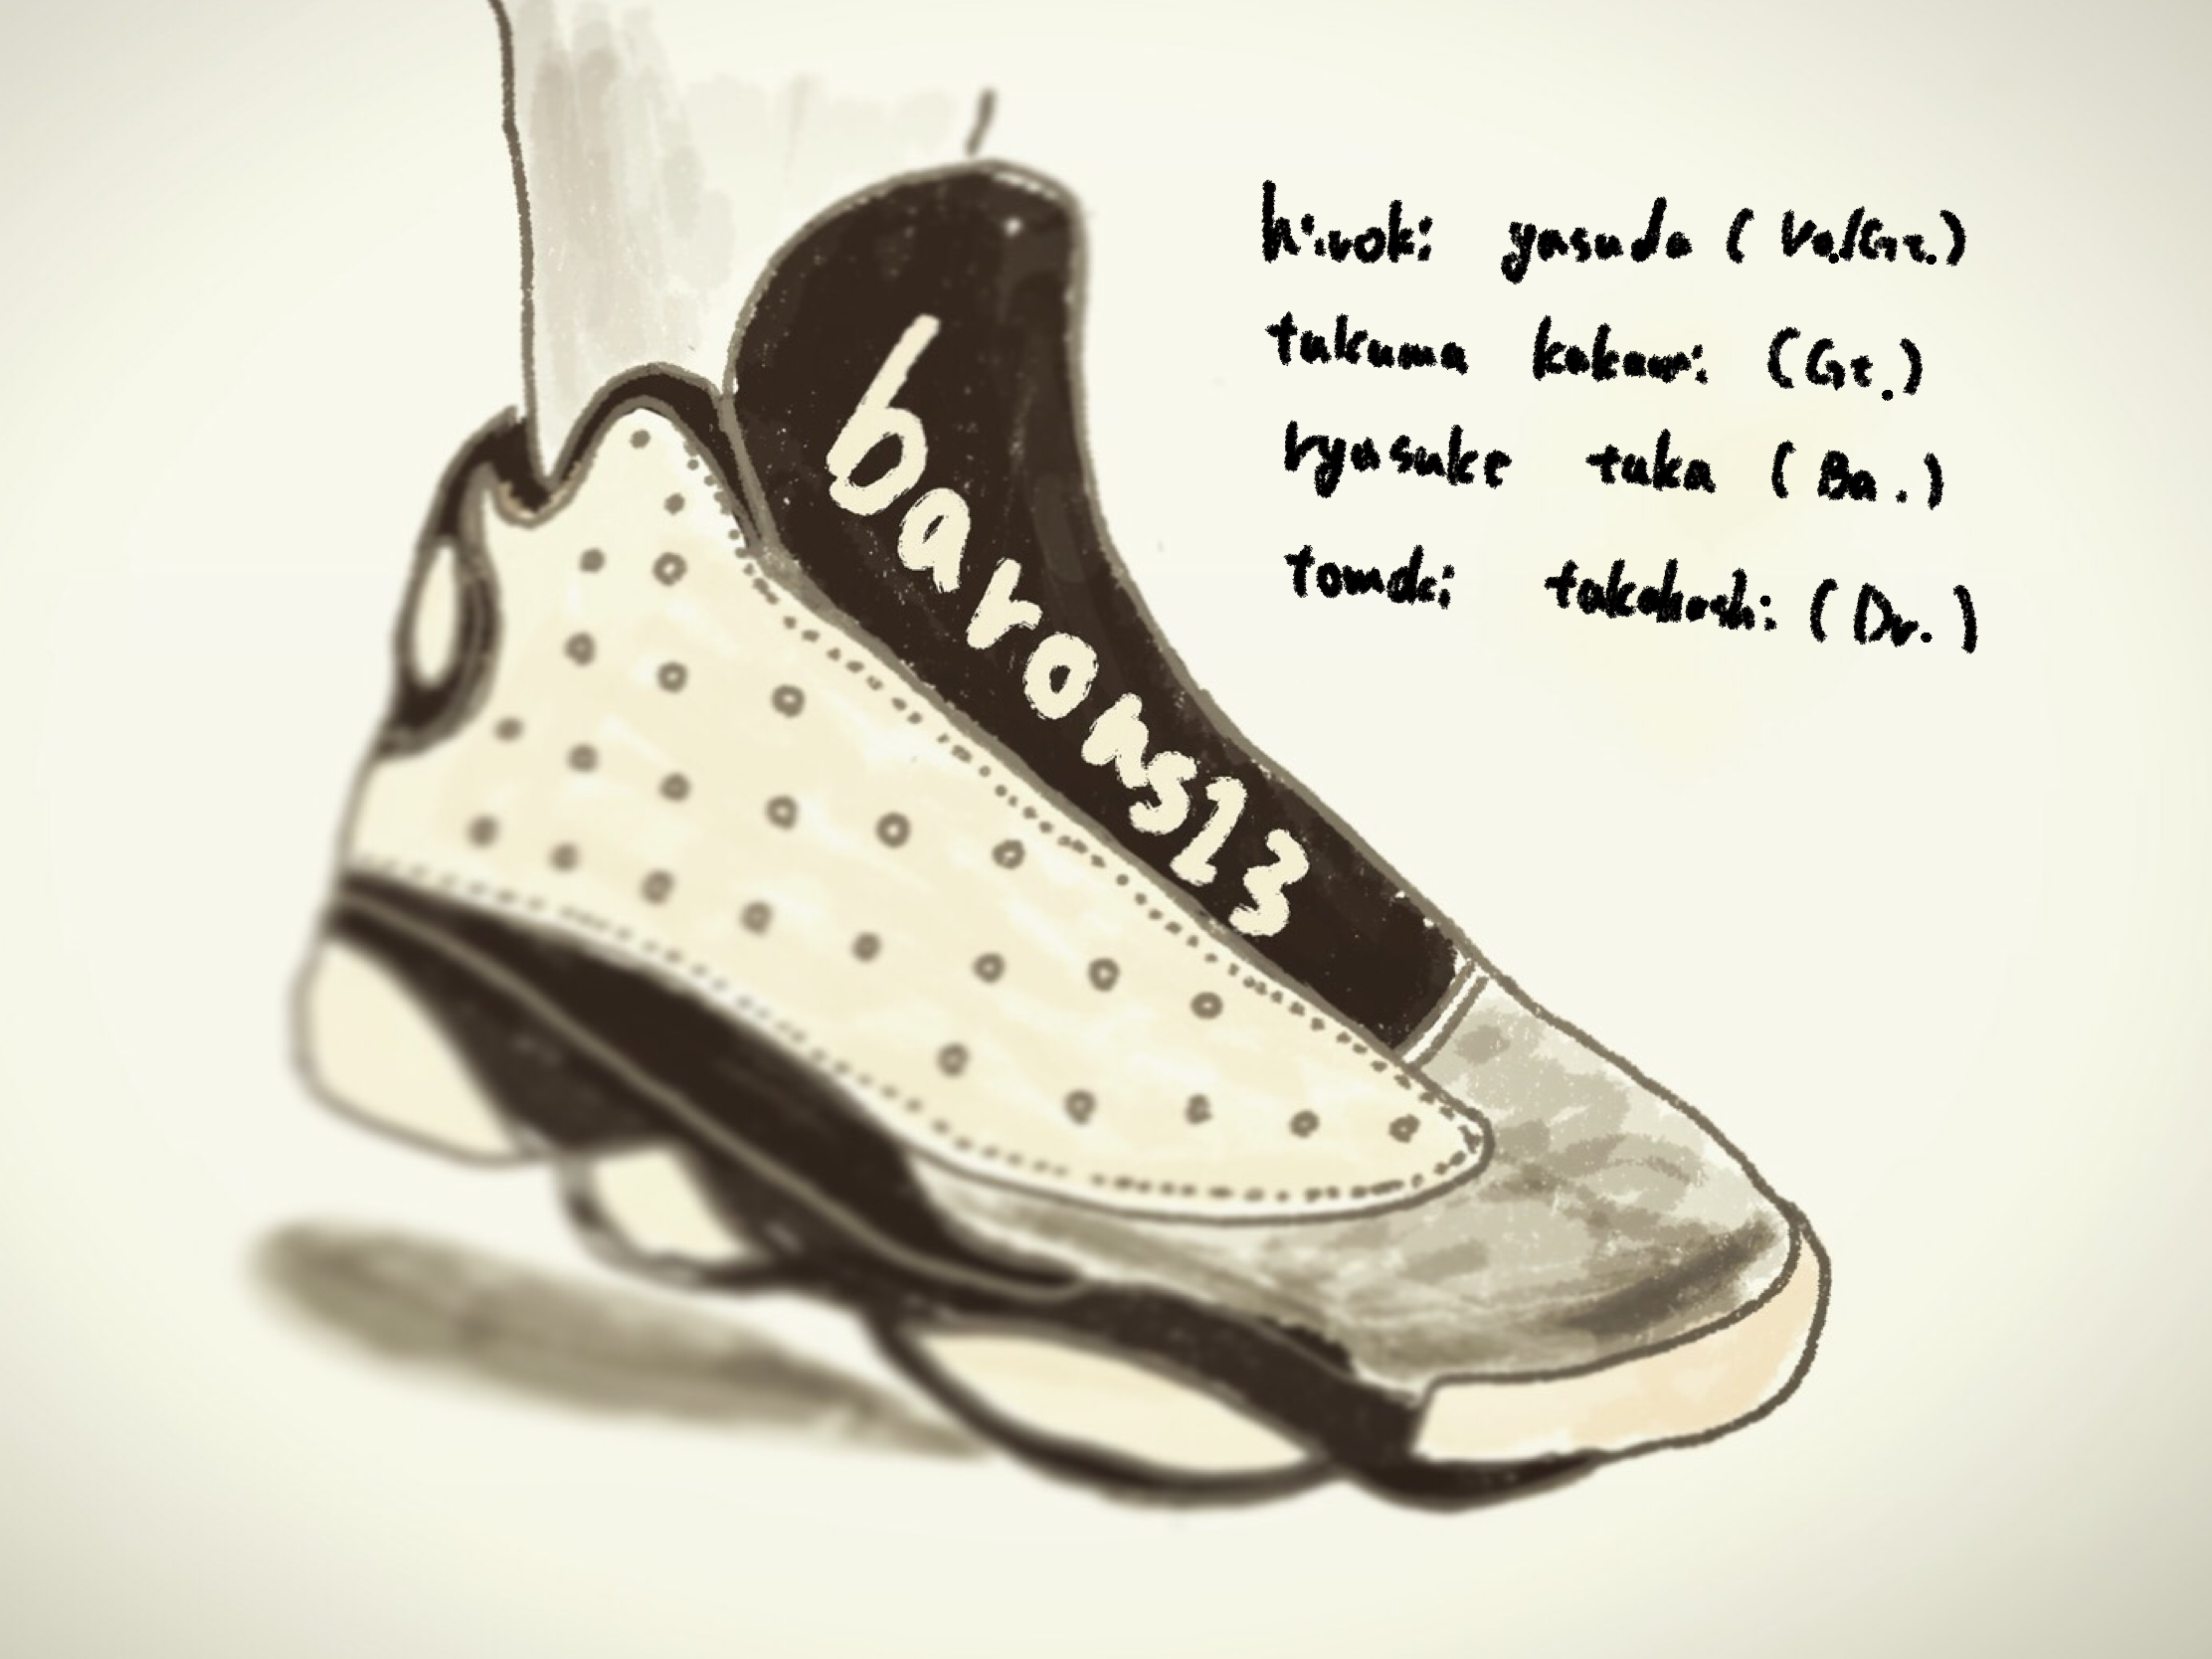 barons13
hiroki yasuda (Vo./Gt.)
takuma kakami (Gt.)
ryusuke taka (Ba.)
tomoki takahashi (Dr.)